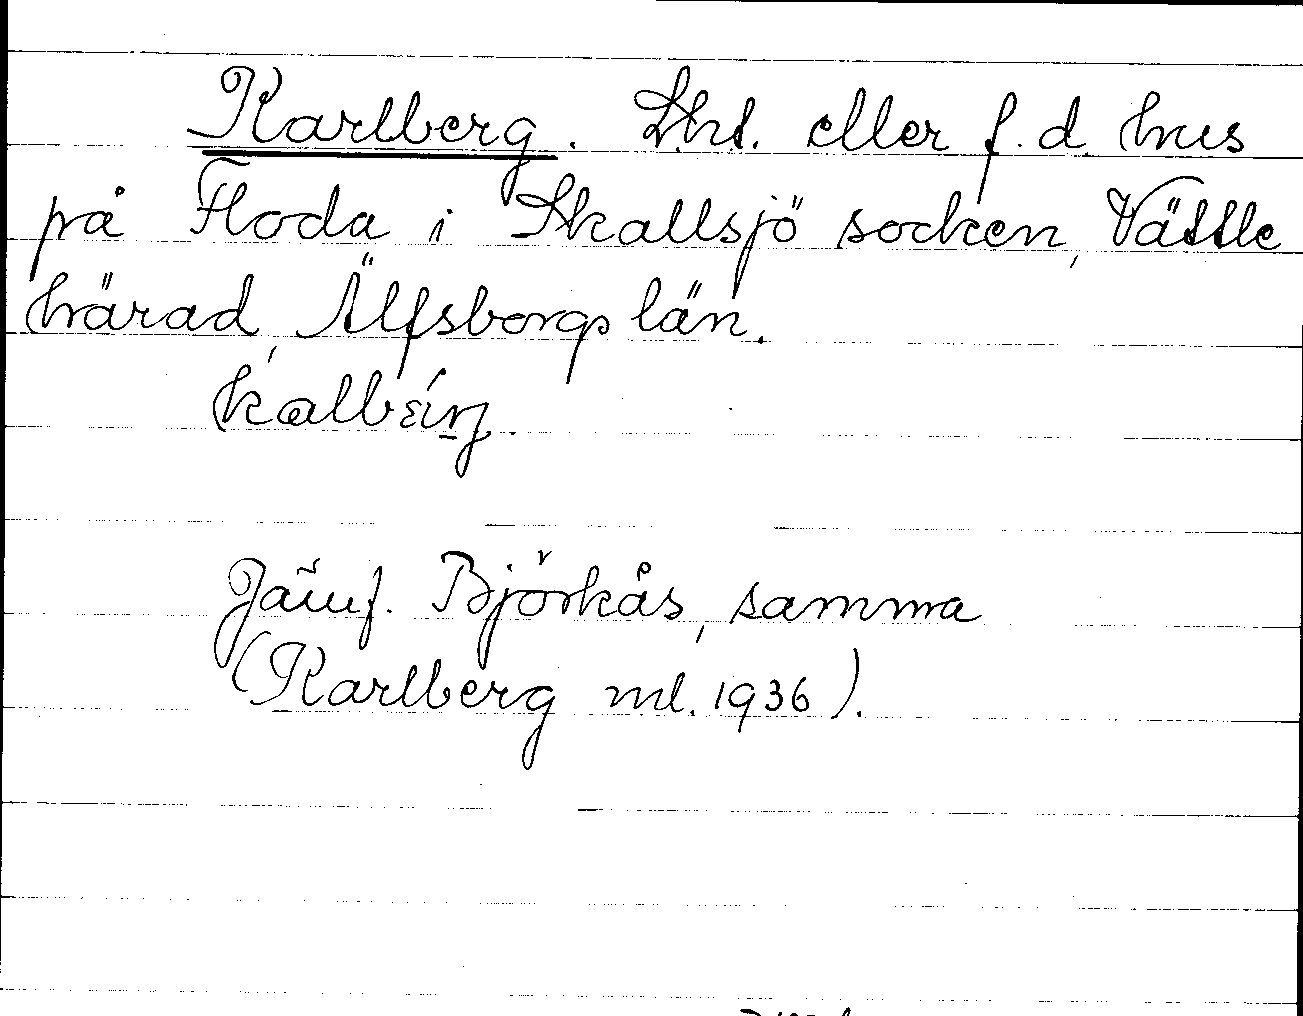 Karlberg. Lht. eller f. d. hus
på Floda i Skallsjö socken, Vättle
härad, Älfsborgs län.
Jämf. Björkås, samma
(Karlberg ml. 1936).